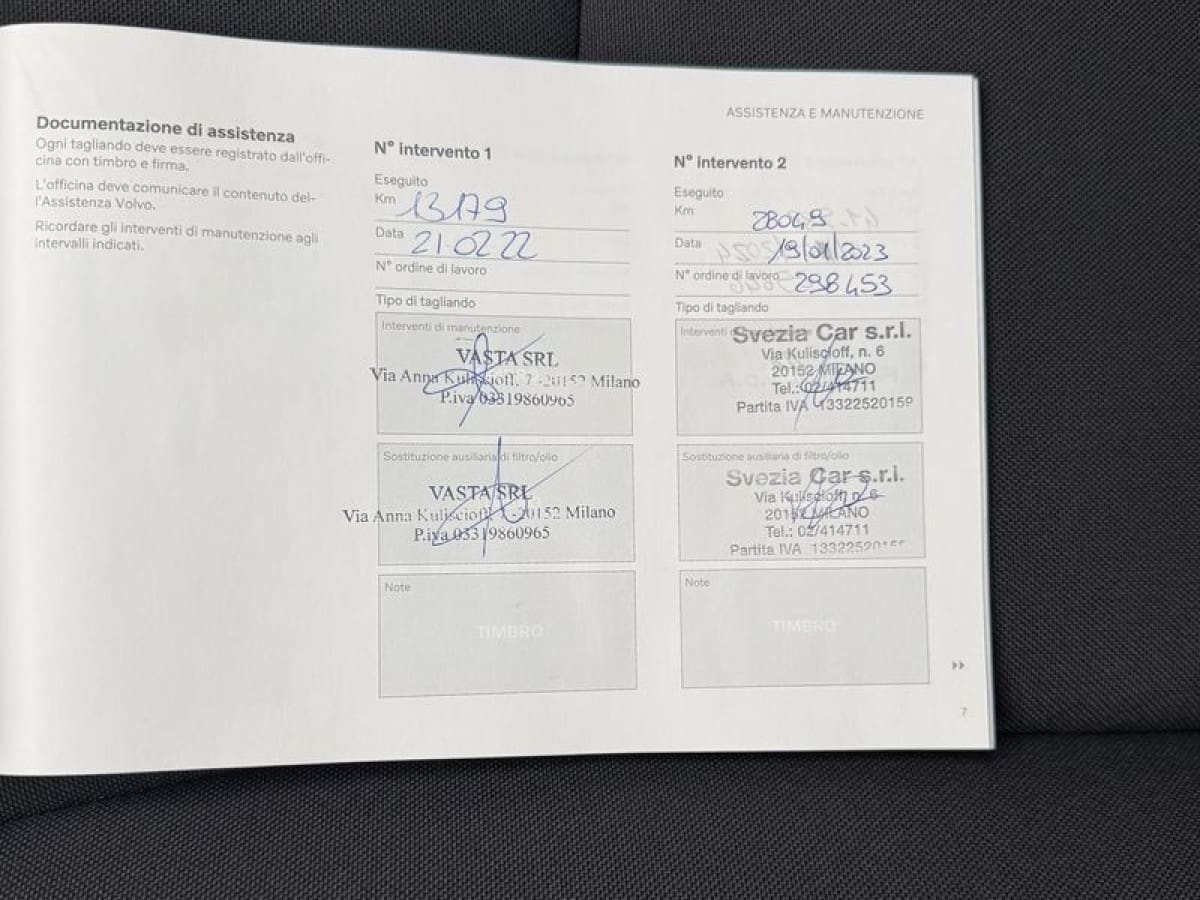 ASSISTENZA E MANUTENZIONE
Documentazione di assistenza
Ogni tagliando deve essere registrato dall'offi-
cina con timbro e firma.
L'officina deve comunicare il contenuto del-
l'Assistenza Volvo.
Ricordare gli interventi di manutenzione agli
intervalli indicati.
N° intervento 1
Eseguito
Km 13179
Data 21.02.22
N° ordine di lavoro
Tipo di tagliando
Interventi di manutenzione
VASTA SRL
Via Anna Kuliscioff, 7 -20152 Milano
P.iva 03319860965
Sostituzione ausiliaria di filtro/olio
VASTA SRL
Via Anna Kuliscioff, -20152 Milano
P.iva 03319860965
Note
TIMBRO
N° intervento 2
Eseguito
Km 28049
Data 19/01/2023
N° ordine di lavoro 298453
Tipo di tagliando
Interventi
Svezia Car s.r.l.
Via Kuliscioff, n. 6
20152 MILANO
Tel.: 02/414711
Partita IVA 13322520159
Sostituzione ausiliaria di filtro/olio
Svezia Car s.r.l.
Via Kuliscioff, n. 6
20152 MILANO
Tel.: 02/414711
Partita IVA
Note
TIMBRO
7